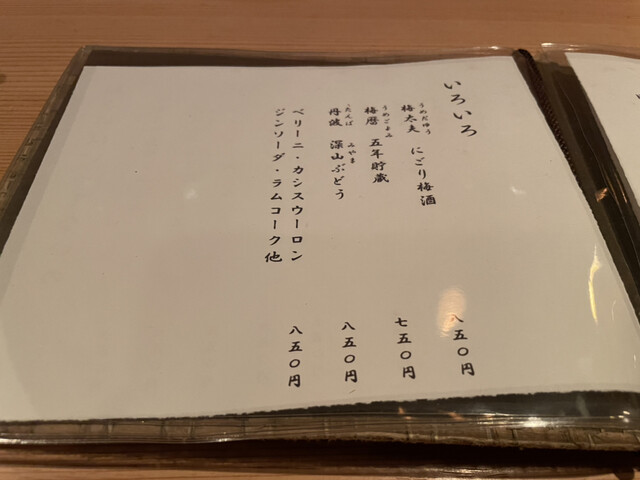 いろいろ
うめだゆう
梅太夫 にごり梅酒 八五〇円
うめごよみ
梅暦 五年貯蔵 七五〇円
たんば みやま
丹波 深山ぶどう 八五〇円
ベリーニ・カシスウーロン
ジンソーダ・ラムコーク他 八五〇円